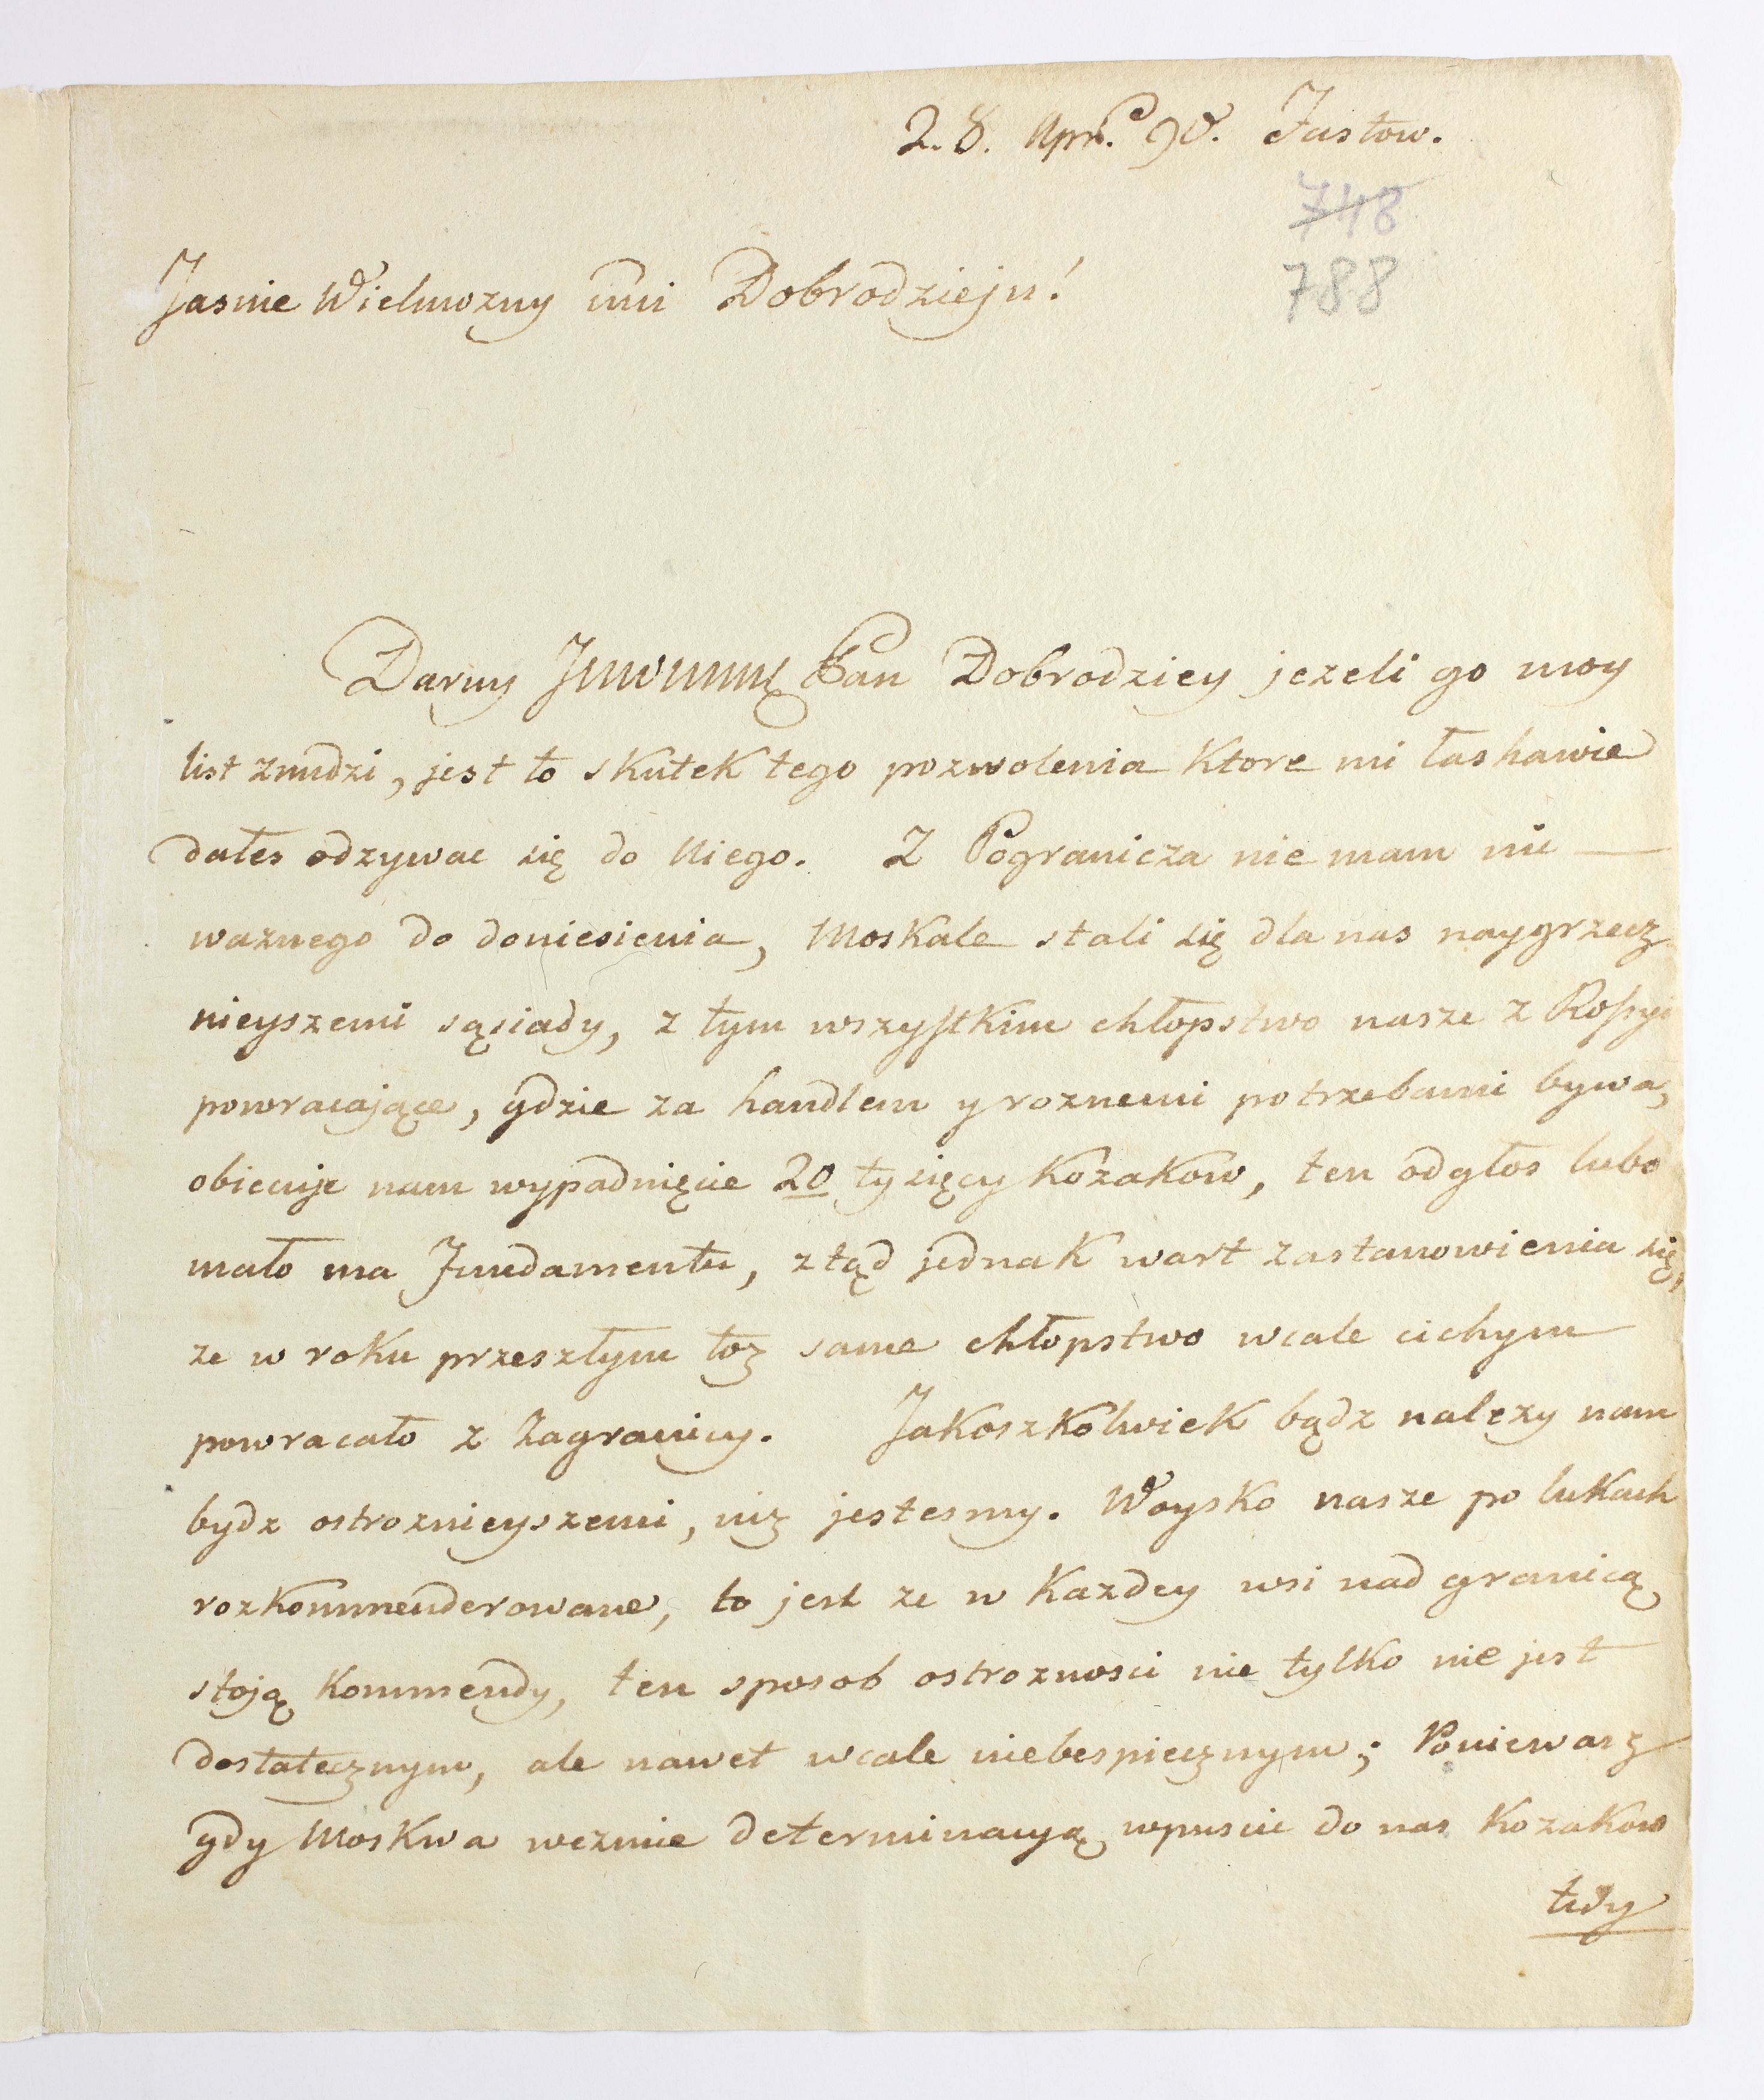 2.8. Apri. 90. Fastow.
748
788
Jasnie Wielmozny mi Dobrodzieju!
Daruy Jmwmmę Pan Dobrodziey jezeli go moy
list znudzi, jest to skutek tego pozwolenia Ktore mi łaskawie
dałes odzywac się do Niego. Z Pogranicza nie mam nic —
waznego do doniesienia, Moskale stali się dla nas naygrzecz
nieyszemi sąsiady, z tym wszystkim chłopstwo nasze z Rossyi
powracające, gdzie za handlem y roznemi potrzebami bywa,
obiecuje nam wypadnięcie 20 tysięcy Kozakow, ten odgłos lubo
mało ma Fundamentu, ztąd jednak wart zastanowienia się,
ze w roku przeszłym toz same chłopstwo wcale cichym
powracało z Zagranicy. Jakoszkolwiek bądz nalezy nam
bydz ostroznieyszemi, niz jestesmy. Woysko nasze po lukach
rozkommenderowane, to jest ze w Kazdey wsi nad granicą
stoją Kommendy, ten sposob ostroznosci nie tylko nie jest
dostatecznym, ale nawet wcale niebespiecznym; Poniewasz
gdy Moskwa wezmie determinacyą wpuscic do nas Kozakow
tedy